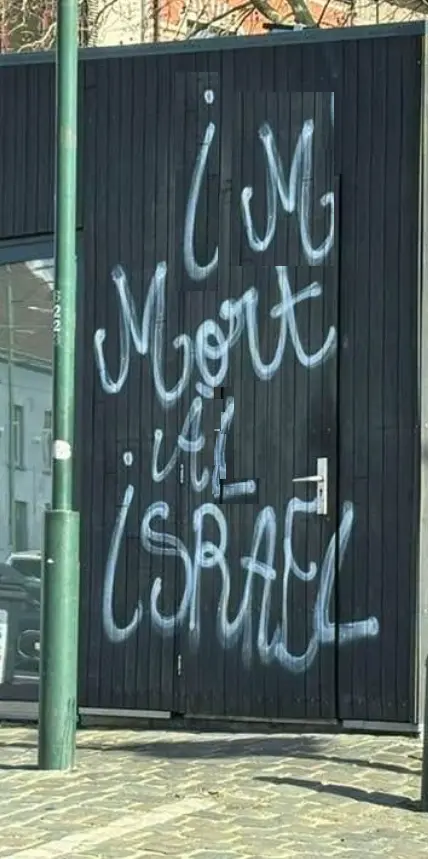 i M
Mort
AL
iSRAEL